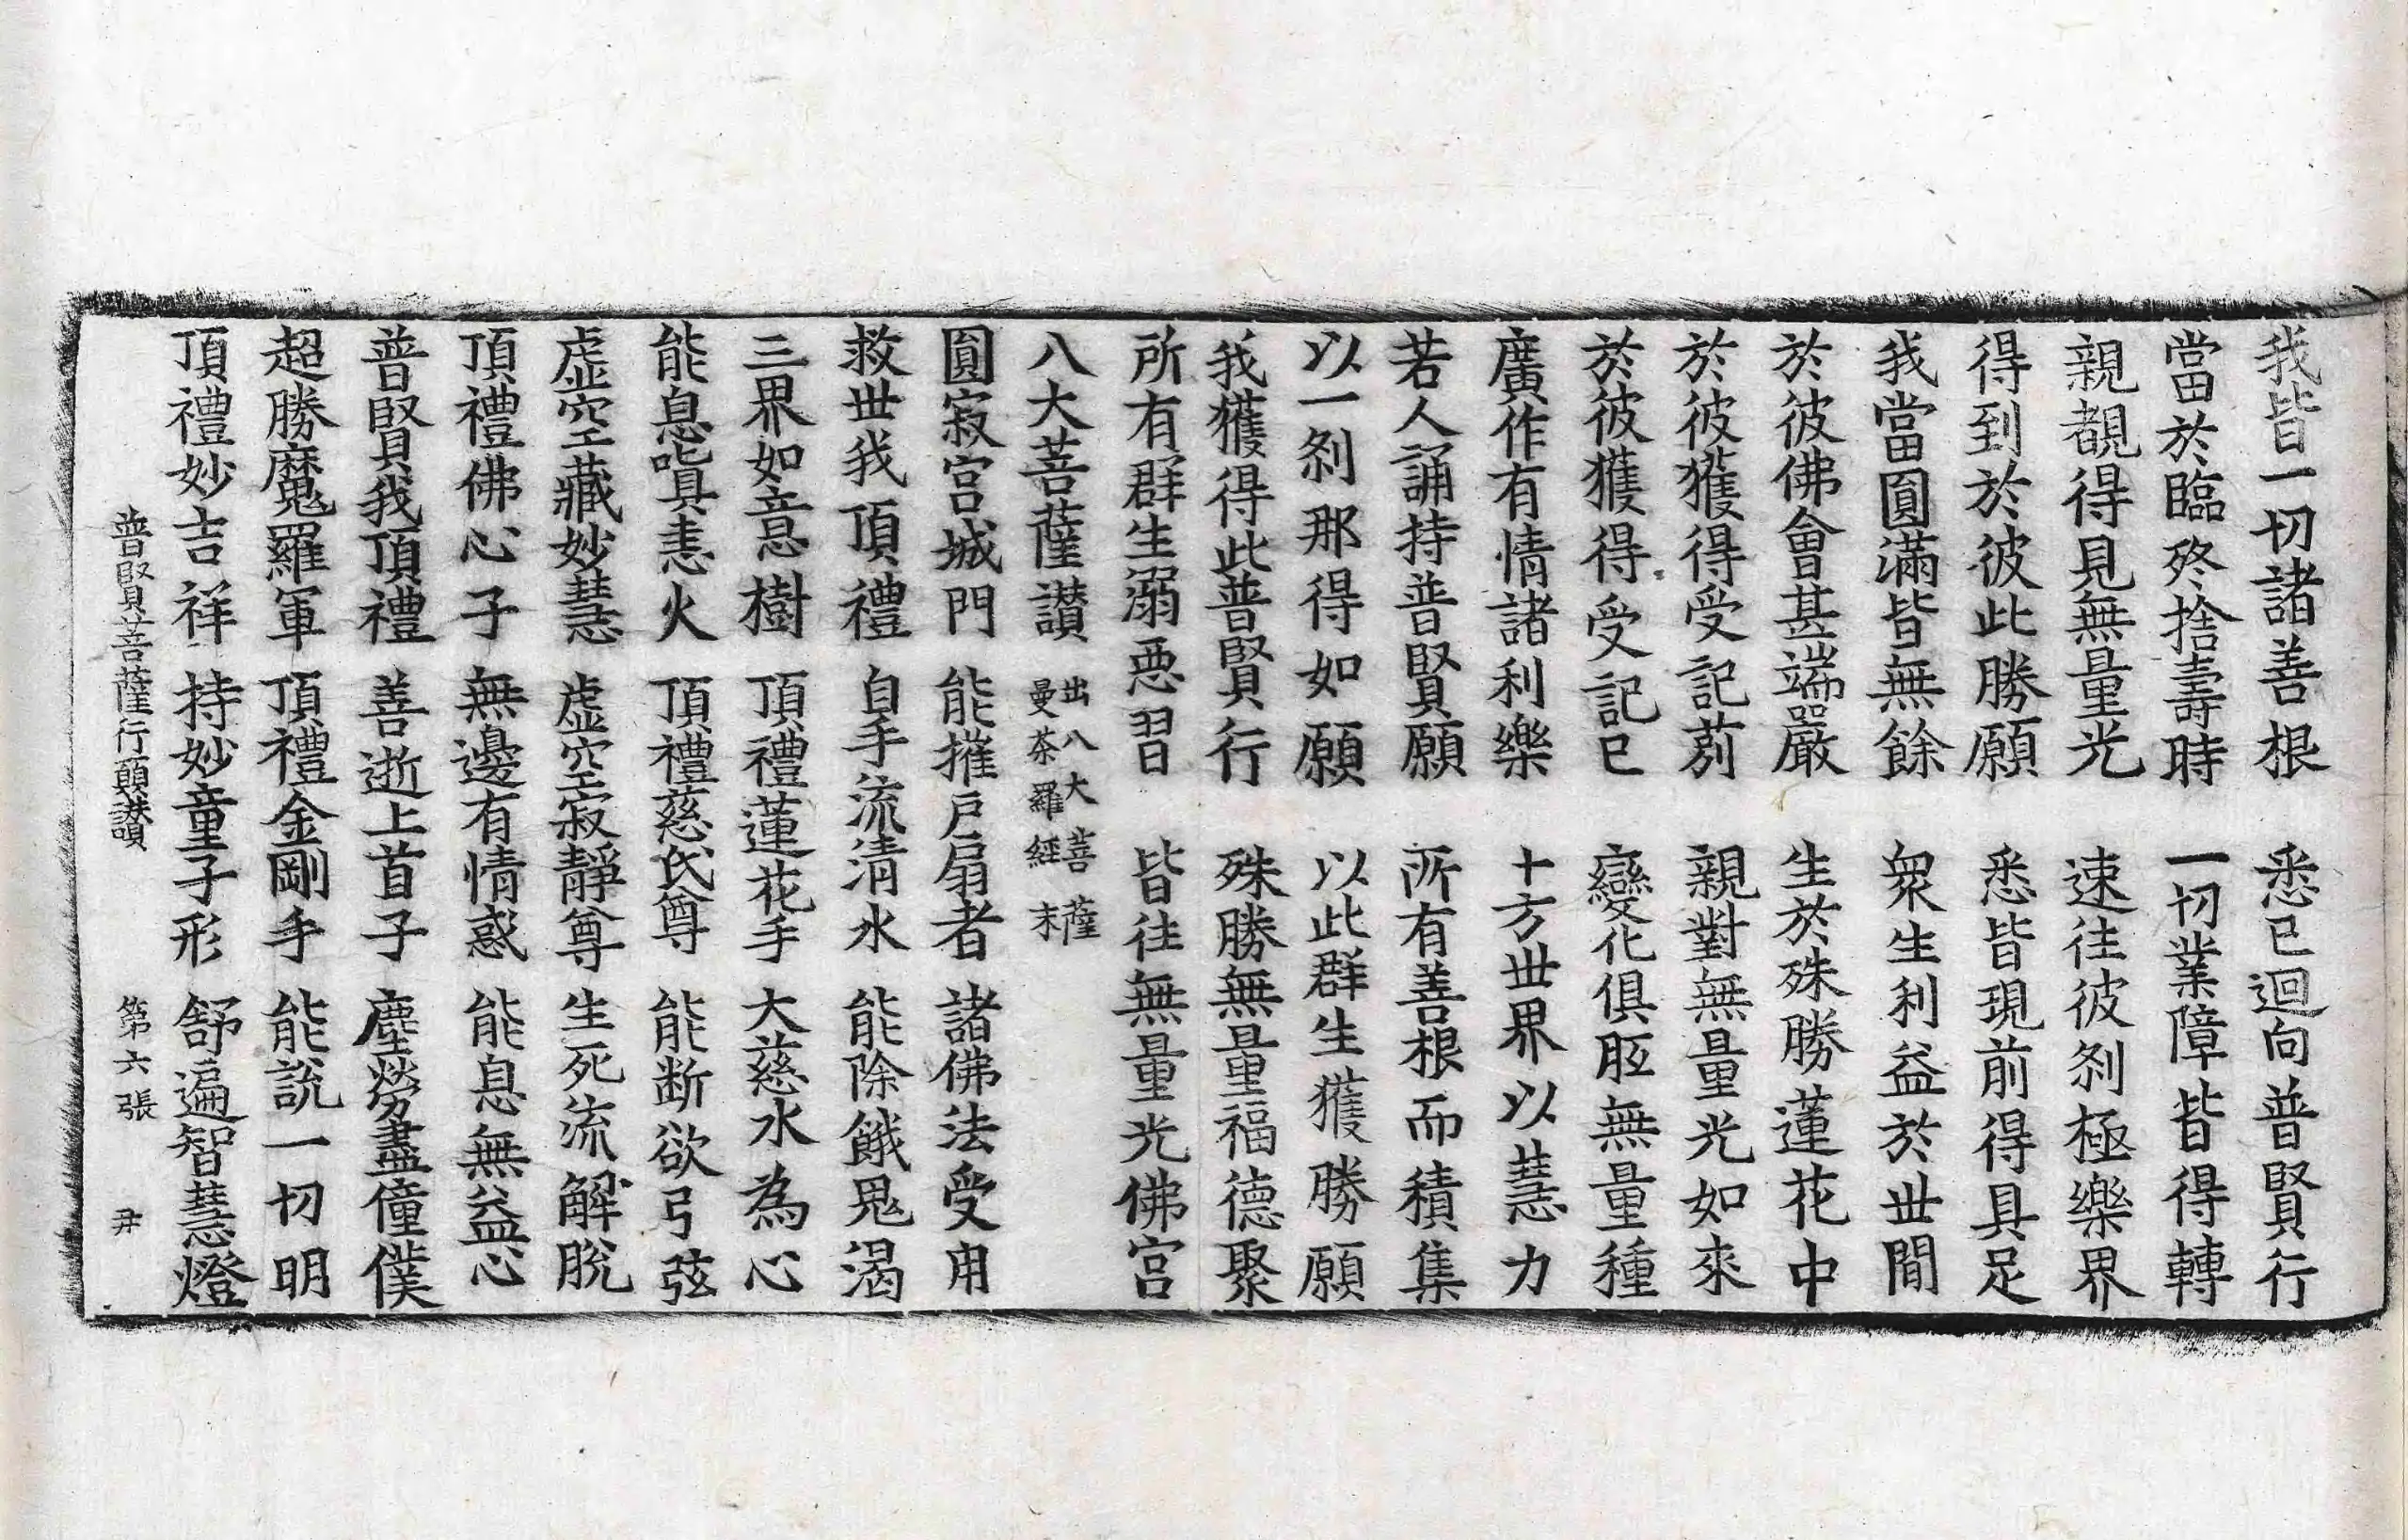 我皆一切諸善根　悉已迴向普賢行
當於臨終捨壽時　一切業障皆得轉
親覩得見無量光　速往彼刹極樂界
得到於彼此勝願　悉皆現前得具足
我當圓滿皆無餘　衆生利益於世間
於彼佛會甚端嚴　生於殊勝蓮花中
於彼獲得受記莂　親對無量光如來
於彼獲得受記已　變化俱胝無量種
廣作有情諸利樂　十方世界以慧力
若人誦持普賢願　所有善根而積集
以一刹那得如願　以此群生獲勝願
我獲得此普賢行　殊勝無量福德聚
所有群生溺惡習　皆往無量光佛宮
八大菩薩讃　出八大菩薩
曼荼羅經末
圓寂宮城門　能摧戶扇者　諸佛法受用
救世我頂禮　自手流清水　能除餓鬼渴
三界如意樹　頂禮蓮花手　大慈水為心
能息瞋恚火　頂禮慈氏尊　能断欲弓弦
虛空藏妙慧　虛空寂靜尊　生死流解脫
頂禮佛心子　無邊有情惑　能息無益心
普賢我頂禮　善逝上首子　塵勞盡僮僕
超勝魔羅軍　頂禮金剛手　能說一切明
頂禮妙吉祥　持妙童子形　舒遍智慧燈
普賢菩薩行願讃　第六張　尹